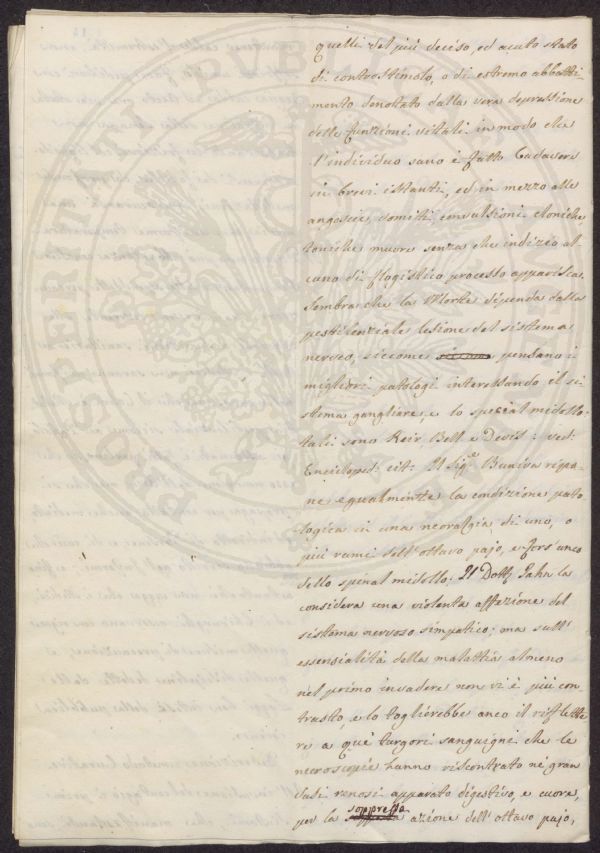 quelli del più deciso, ed acuto stato
di controstimolo, o di estremo abbatti-
mento denotato dalla vera depressione
delle funzioni vitali in modo che
l'individuo sano è fatto Cadavere
in brevi istanti, ed in mezzo alle
angoscie, vomiti convulsioni cloniche
toniche muore senza che indizio al-
cuno di flogistico processo apparisca.
Sembra che la Morte dipenda dalla
pestilenziale lesione del sistema
nervoso, siccome pensano i
migliori patologi interessando il si
stema gangliare, e lo spinal midollo.
tali sono Reir, Bell e Devis: ved:
Encicloped. cit: Il Sig.e Buniva ripo-
ne egualmente la condizione pato
logica in una nevralgia di uno, o
più rami dell'ottavo pajo, e fors'anco
dello spinal midollo. Il Dott. Jahn la
considera una violenta affezione del
sistema nervoso simpatico; ma sull'
essenzialità della malattia almeno
nel primo invadere non vi è più con
trasto, e lo toglierebbe anco il riflette
re a que' turgori sanguigni che le
necroscopie hanno riscontrato ne' gran
vasi venosi apparato digestivo, e cuore,
per la soppressa azione dell'ottavo pajo,
PROSPERITATI PUBLI